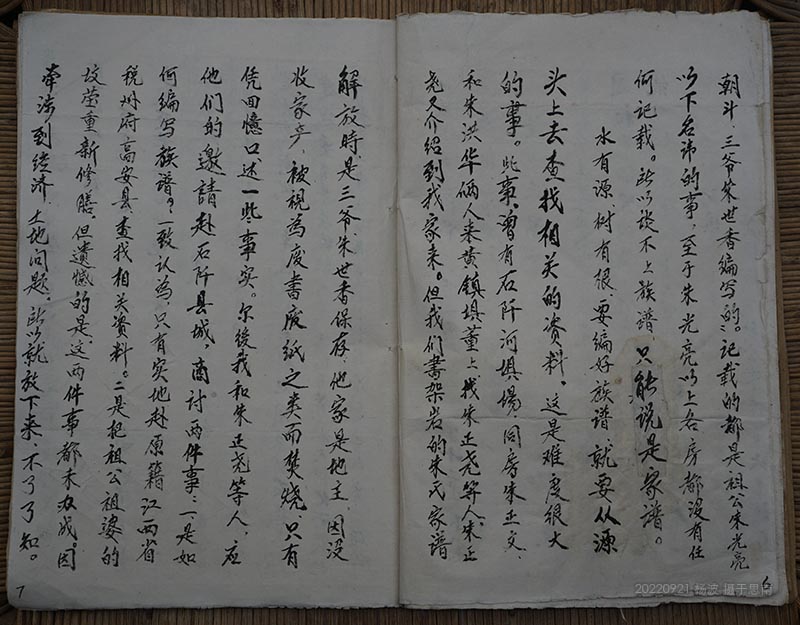 朝斗、三爷朱世香编写的。记载的都是祖公朱光亮
以下名讳的事，至于朱光亮以上各房都没有任
何记载。所以谈不上族谱，只能说是家谱。
水有源，树有根，要编好族谱，就要从源
头上去查找相关的资料，这是难度很大
的事。些事，曾有石阡河埧場，同房朱正文、
和朱洪华俩人来黄镇埧董上找朱正尧等人。朱正
尧又介绍到我家来。但我们書架岩的朱氏家譜
6
解放時是三爷朱世香保存，他家是地主，因没
收家产，被视為废書废纸之类而焚烧，只有
凭回憶口述一些事实。尔後我和朱正尧等人，应
他们的邀請赴石阡县城，商讨两件事：一是如
何编写族谱，一致认為，只有实地赴原籍江西省
税州府高安县，查找相关資料。二是把祖公祖婆的
坟莹重新修膳。但遗憾的是，这两件事都未办成，因
牵涉到经济、土地问题。所以就放下来，不了了知。
7
20220921 杨波 摄于思南